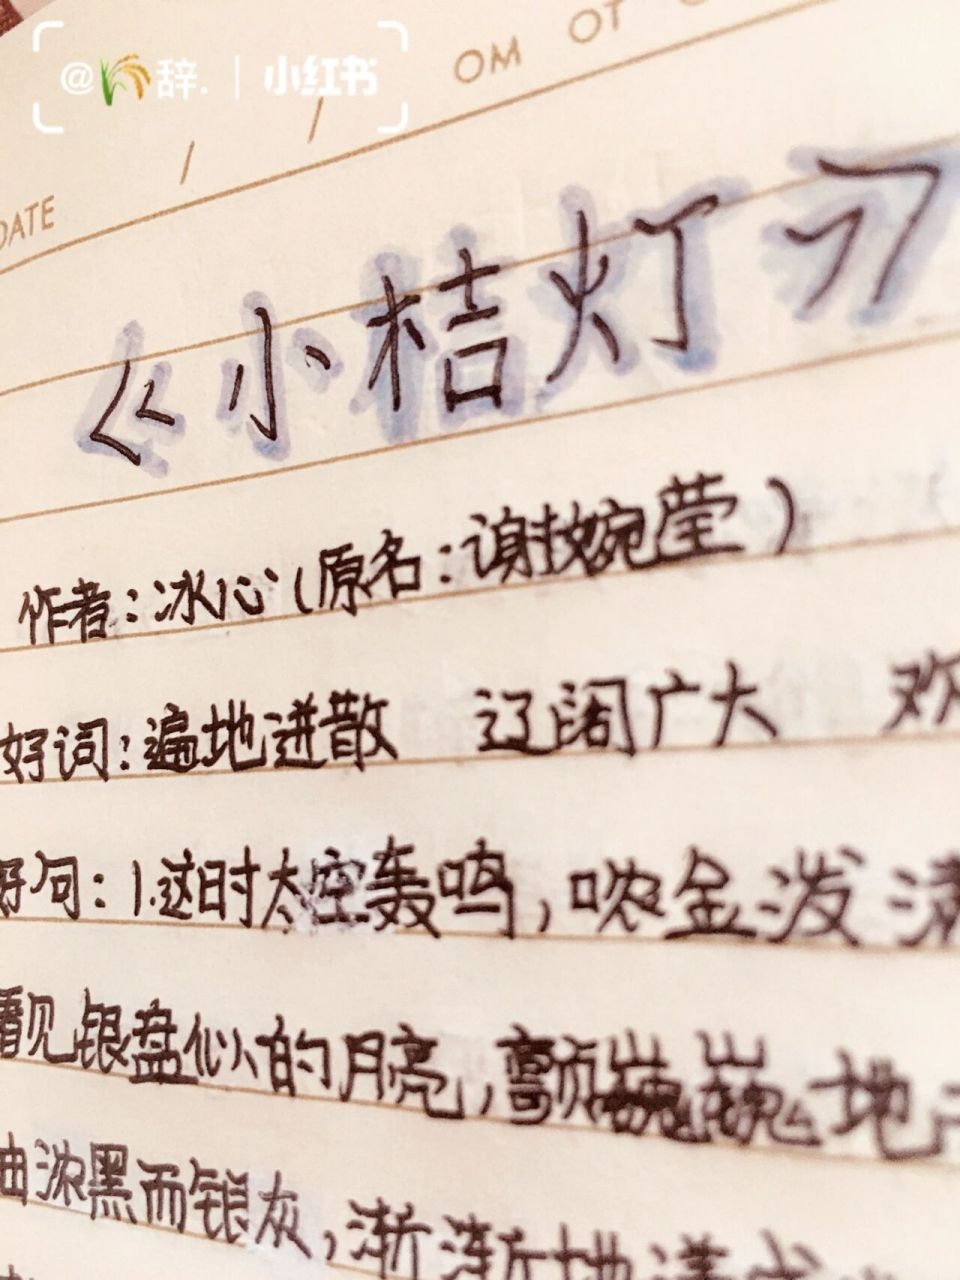 @辞. | 小红书
OM OT
DATE / /
《小桔灯》
作者：冰心（原名：谢婉莹）
好词：遍地迸散 辽阔广大 欢
好句：1.这时太空轰鸣，哝金泼
看见银盘似的月亮，颤巍巍地
由浓黑而银灰，渐渐地